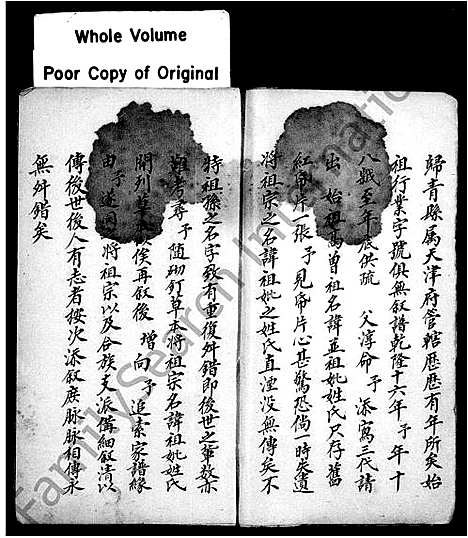 Whole Volume
Poor Copy of Original
歸青縣属天津府管轄歷歷有年所矣始
祖行業字號俱無叙譜乾隆十六年予年十
八歲至年底供號父淳命予添寫三代請
出始祖高曾祖名諱並祖妣姓氏只存舊
紅帋片一張予見帋片心甚驚恐倘一時失遺
將祖宗之名諱祖妣之姓氏直湮没無傳矣不
特祖孫之名字致有重復舛錯即後世之輩数亦
難考尋予随砌釘草本將祖宗名諱祖妣姓氏
開列草本以俟再叙後增向予追索家譜緣
由予遂同將祖宗以及合族支派俻細叙清以
傳後世後人有志者按次添叙庶脉脉相傳永
無舛錯矣
FamilySearch International